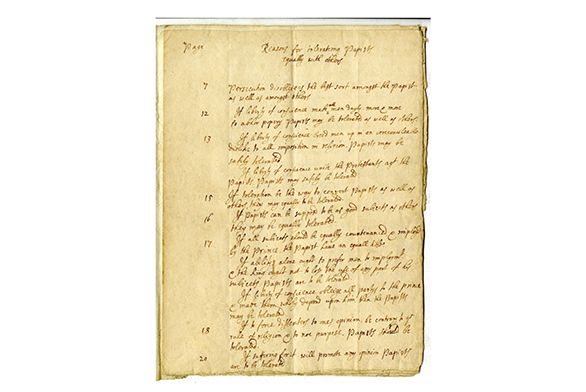 Page Reasons for tolerateing Papists
equally with others
7 Persecution disobleiges the best sort amongst the Papists
as well as amongst others
12 If liberty of conscience make men dayly more & more
to abhor popery Papists may be tolerated as well as others
13 If liberty of conscience breed men up in an
dislike to all imposition in religion Papists may be
safely tolerated
If liberty of conscience unite the Protestants agt the
Papists Papists may safely be tolerated
15 If toleration be the way to convert Papists as well as
others they may equally to be tolerated
16 If Papists can be supposd to be as good subjects as others
they may be equally tolerated
17 If all subjects should be equally countenanced & imployd
by the Prince the Papist have an equall title
If abilitys alone ought to prefer men to imploymt
& the King ought not to lose the use of any part of his
subjects Papists are to be tolerated
If liberty of conscience obleige all partys to the prince
& make them wholy depend upon him then the Papists
may be tolerated
18 If to force dissenters to ones opinion be contrary to ye
rule of religion & to noe purpose Papists should be
tolerated
20 If suffering for it will promote any opinion Papists
are to be tolerated